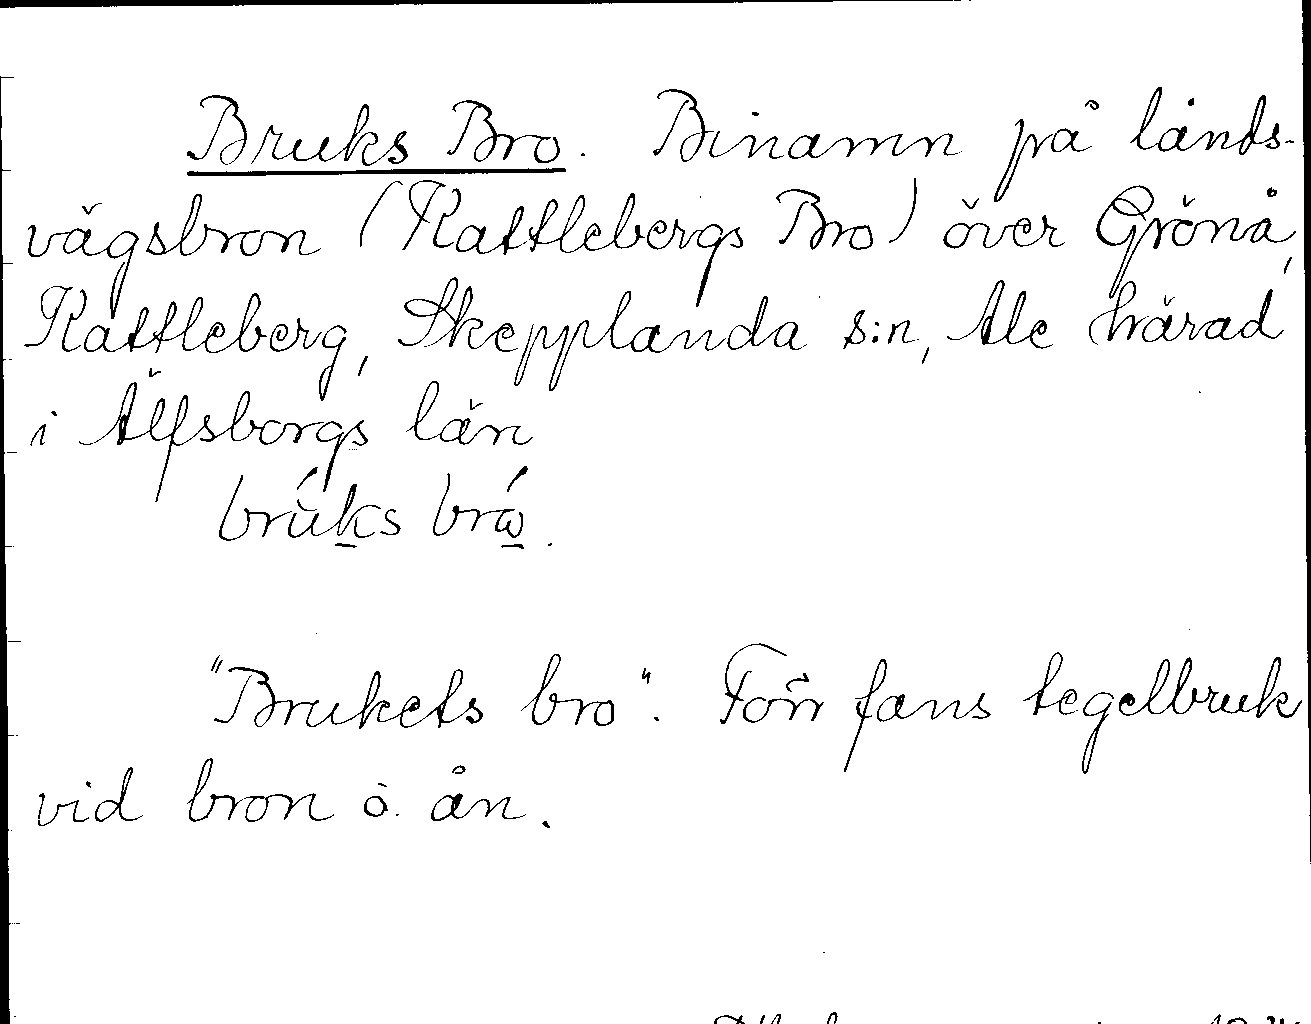 Bruks Bro. Binamn på lands-
vägsbron (Kattlebergs Bro) över Grönå,
Kattleberg, Skepplanda s:n, Ale härad
i Älfsborgs län
"Brukets bro". Förr fans tegelbruk
vid bron o. ån.